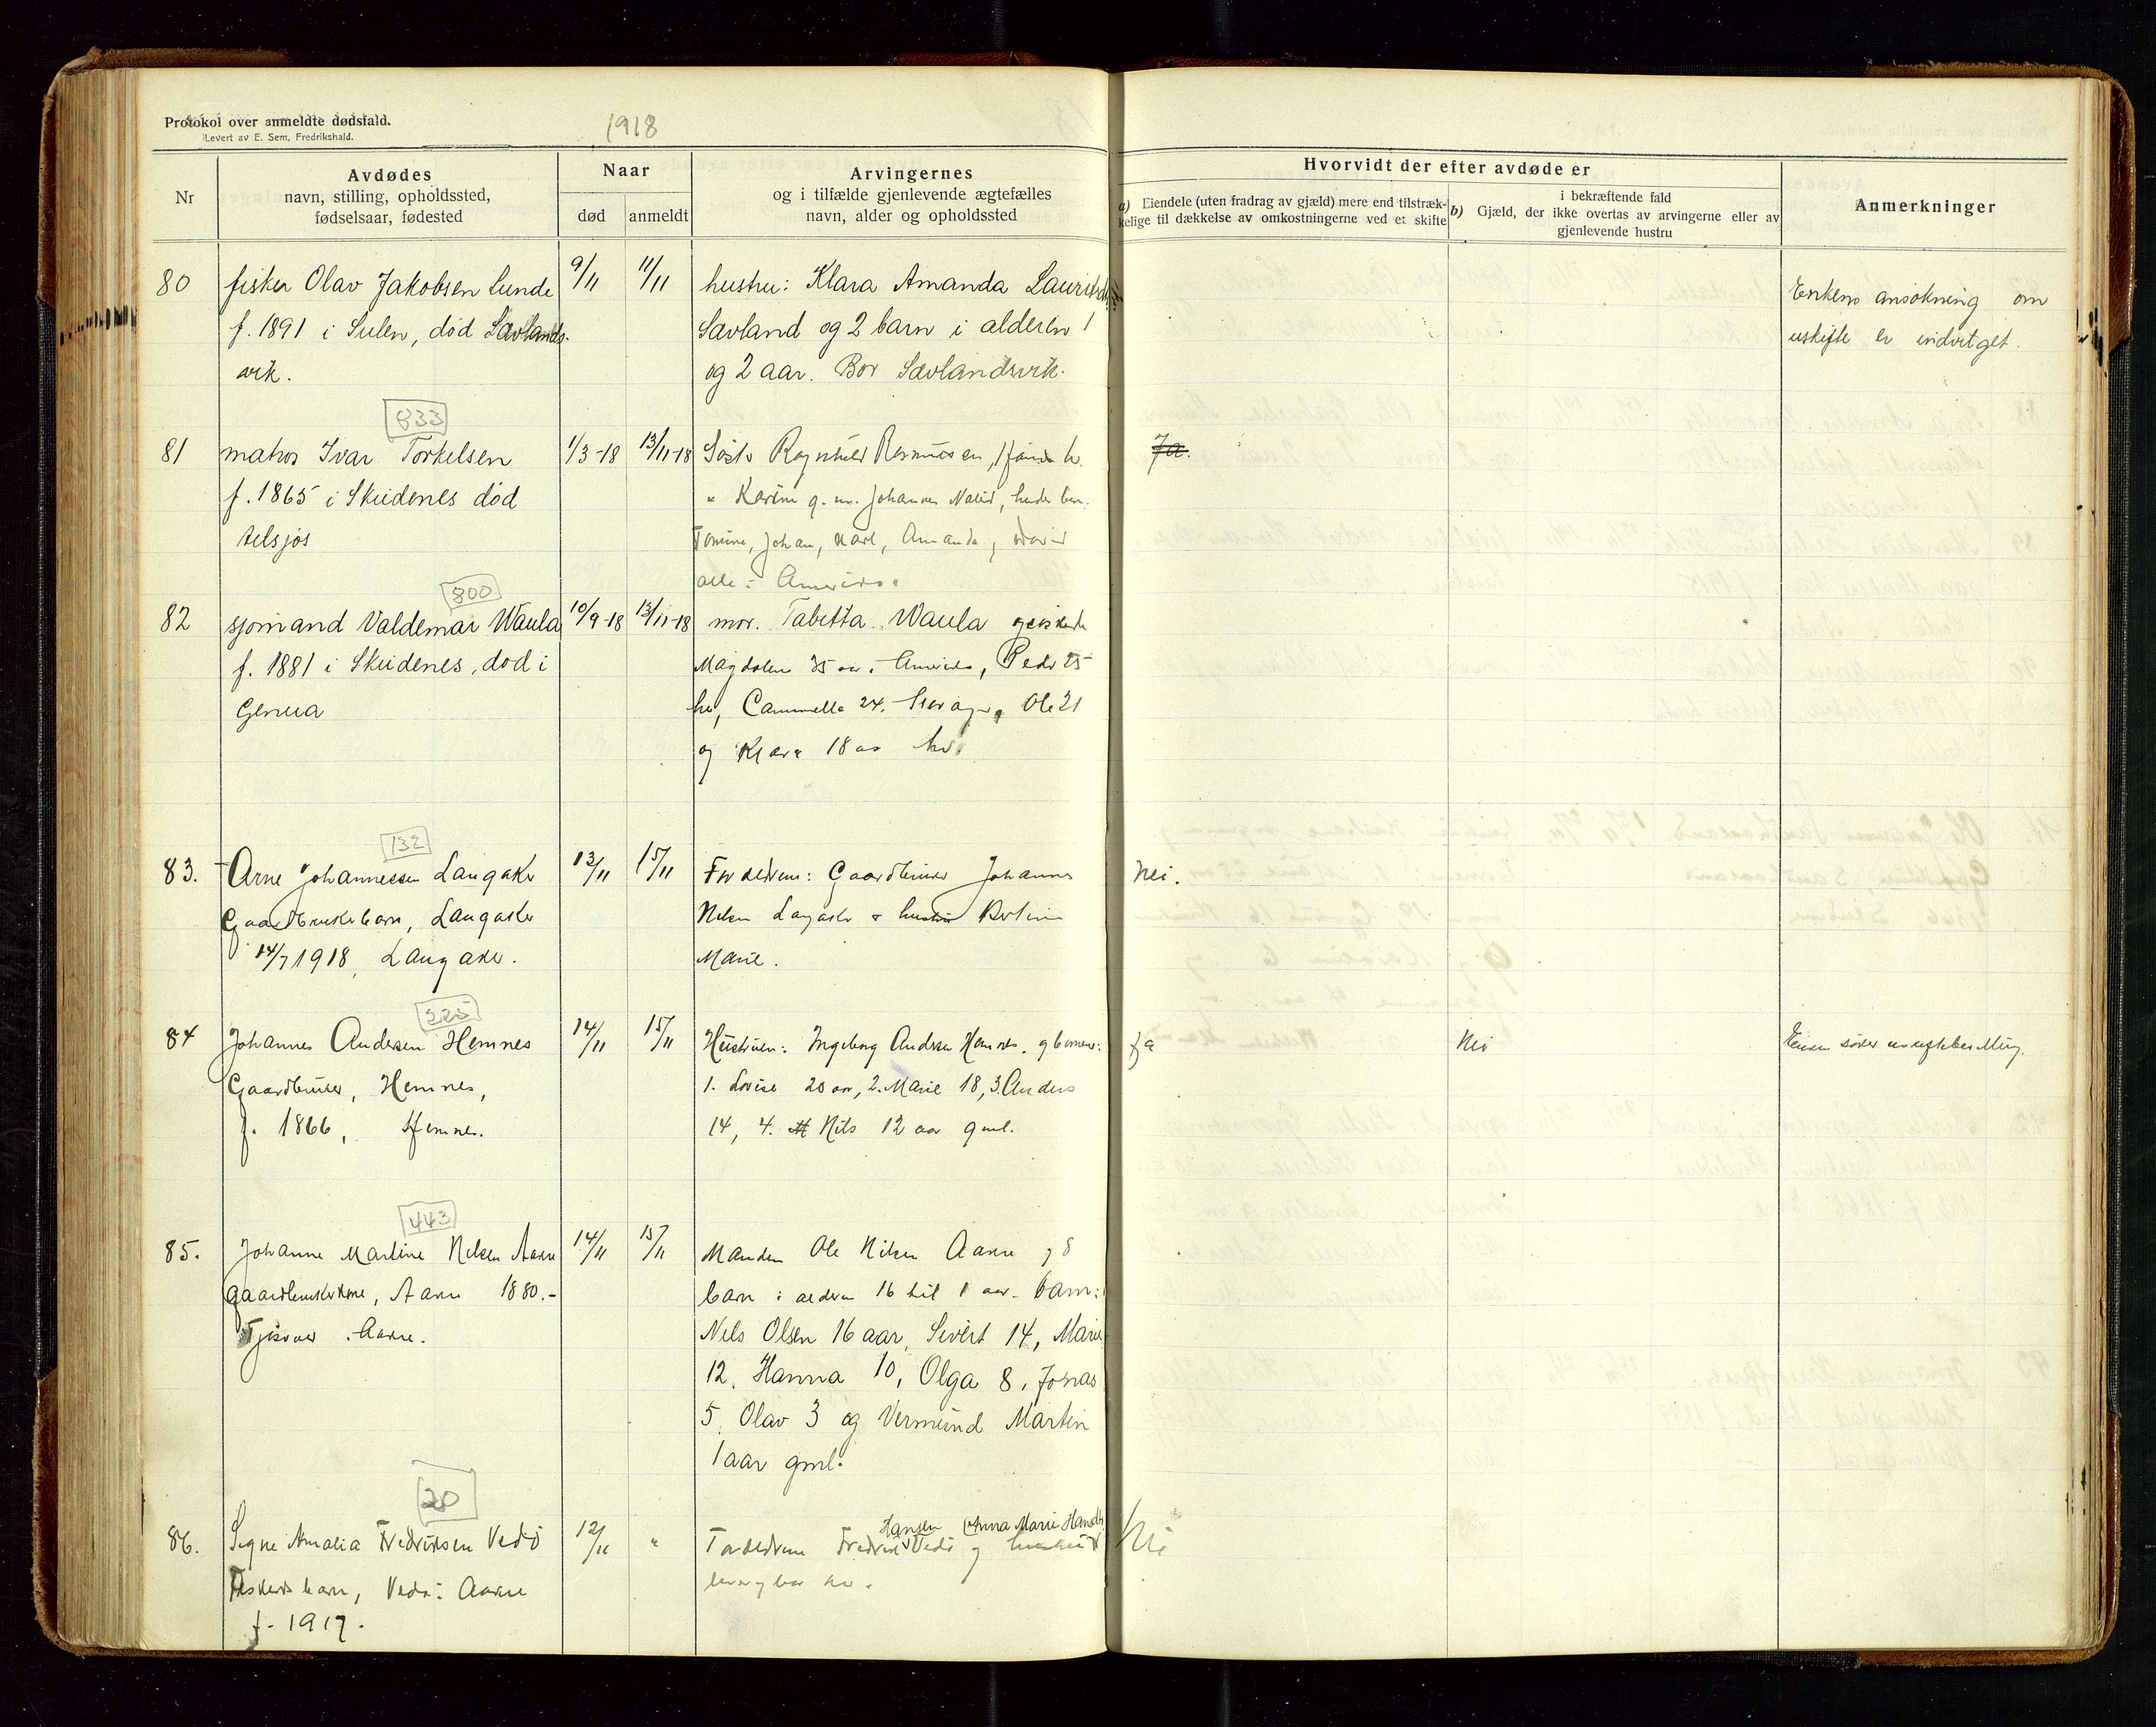 Protokol over anmeldte dødsfald.
Levert av E. Sem, Fredrikshald.
1918
Nr
Avdødes
navn, stilling, opholdssted,
fødselsaar, fødested
Naar
død
anmeldt
Arvingernes
og i tilfælde gjenlevende ægtefælles
navn, alder og opholdssted
Hvorvidt der efter avdøde er
a) Eiendele (uten fradrag av gjæld) mere end tilstræk-
kelige til dækkelse av omkostningerne ved et skifte
b)
i bekræftende fald
Gjæld, der ikke overtas av arvingerne eller av
gjenlevende hustru
Anmerkninger
80
fisker Olav Jakobsen Lunde
f. 1891 i Sulen, død Sævlands-
vik.
9/11
11/11
hustru: Klara Amanda
Sævland og 2 barn i alderen 1
og 2 aar. Bor Sævlandsvik.
Enkens ansøkning om
uskifte er indvilget.
833
81
matros Ivar Torkelsen
f. 1865 i Skudenes død
tilsjøs
1/3-18
13/11-18
Søster Ragnhild Rasmussen,
" Karine g. m. Johannes
Tomine, Johan, Karl, Amanda,
alle i Amerika.
Ja.
800
82
sjømand Valdemar Waula
f. 1881 i Skudenes, død i
Genua
10/9-18
13/11-18
mor. Tabetta Waula
Magdalene 35 aar i Amerika, Peder 25
her, Cammella 24. Ole 21
og Klara 18 aar her.
132
83.
Arne Johannessen Langaker
Gaardbrukerbarn, Langaker
14/7 1918, Langaker.
13/11
15/11
Forældrene: Gaardbruker Johannes
Nilsen Langaker & hustru Bertine
Marie.
Nei.
225
84
Johannes Andersen Hemnes
Gaardbruker, Hemnes,
f. 1866, Hemnes.
14/11
15/11
Hustruen: Ingeborg Andersen Hemnes. og børnene:
1. Lovise 20 aar, 2. Marie 18, 3. Anders
14, 4. Nils 12 aar gml.
Ja
Nei
Enken søker uskiftebevilling.
443
85.
Johanne Martine Nilsen Aakre
gaardbrukerkone, Aakre 1880.-
Tjøsvoer. Aakre.
14/11
15/11
Manden Ole Nilsen Aakre og 8
barn i alderen 16 til 1 aar. Barn:
Nils Olsen 16 aar, Sivert 14, Marie
12, Hanna 10, Olga 8, Jonas
5, Olav 3 og Vermund Martin
1 aar gml.
20
86.
Signe Amalia Fredriksen Vedø
Fiskerbarn, Vedø i Aakre
f. 1917.
12/11
"
Hansen (Anna Marie Hansdtr
Forældrene Fredrik Vedø og hustru
lever og bor her.
Nei